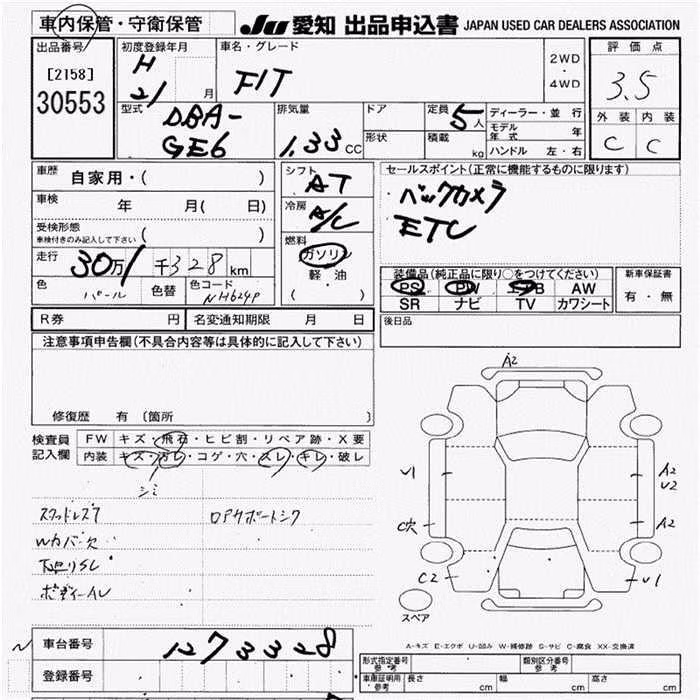 車内保管・守衛保管 JU 愛知 出品申込書 JAPAN USED CAR DEALERS ASSOCIATION
出品番号 初度登録年月 車名・グレード 2WD・4WD 評価点
[2158] H 21 月 FIT 3.5
30553
型式 排気量 ドア 定員 5人 ディーラー・並行 外装 内装
DBA-GE6 1.33 CC 形状 積載 kg モデル年式 年 C C
ハンドル 左・右
車歴 自家用・( ) シフト AT セールスポイント(正常に機能するものに限ります)
車検 年 月( 日) 冷房 A/C バックカメラ
受検形態 車検付きのみ記入して下さい ( ) 燃料 ガソリン ETC
走行 30万1千328km 軽油
色 パール 色替 色コード NH624P ( )
装備品(純正品に限り○をつけてください) 新車保証書
PS PW エアB AW 有・無
SR ナビ TV カワシート
R券 円 名変通知期限 月 日 後日品
注意事項申告欄(不具合内容等は具体的に記入して下さい)
修復歴 有 〔箇所
検査員記入欄 FW キズ・飛石・ヒビ割・リペア跡・X要
内装 キズ・汚れ・コゲ・穴・スレ・キレ・破レ
シミ
スタッドレス7 ロアサポートシク
Wカバー欠
下廻りSL
ボディーAU
A2
U1 A2
U2
C穴 A2
C2 U1
スペア
A-キズ E-エクボ U-凹み W-補修跡 S-サビ C-腐食 XX-交換済
車台番号 1273328
登録番号
形式指定番号 参考 類別区分番号 参考
車庫証明用 参考 長さ cm 幅 cm 高さ cm